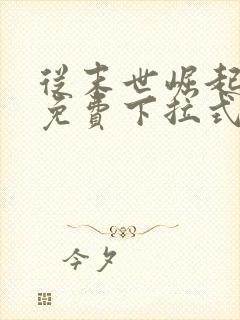 從末世崛起
免費下拉式
今夕